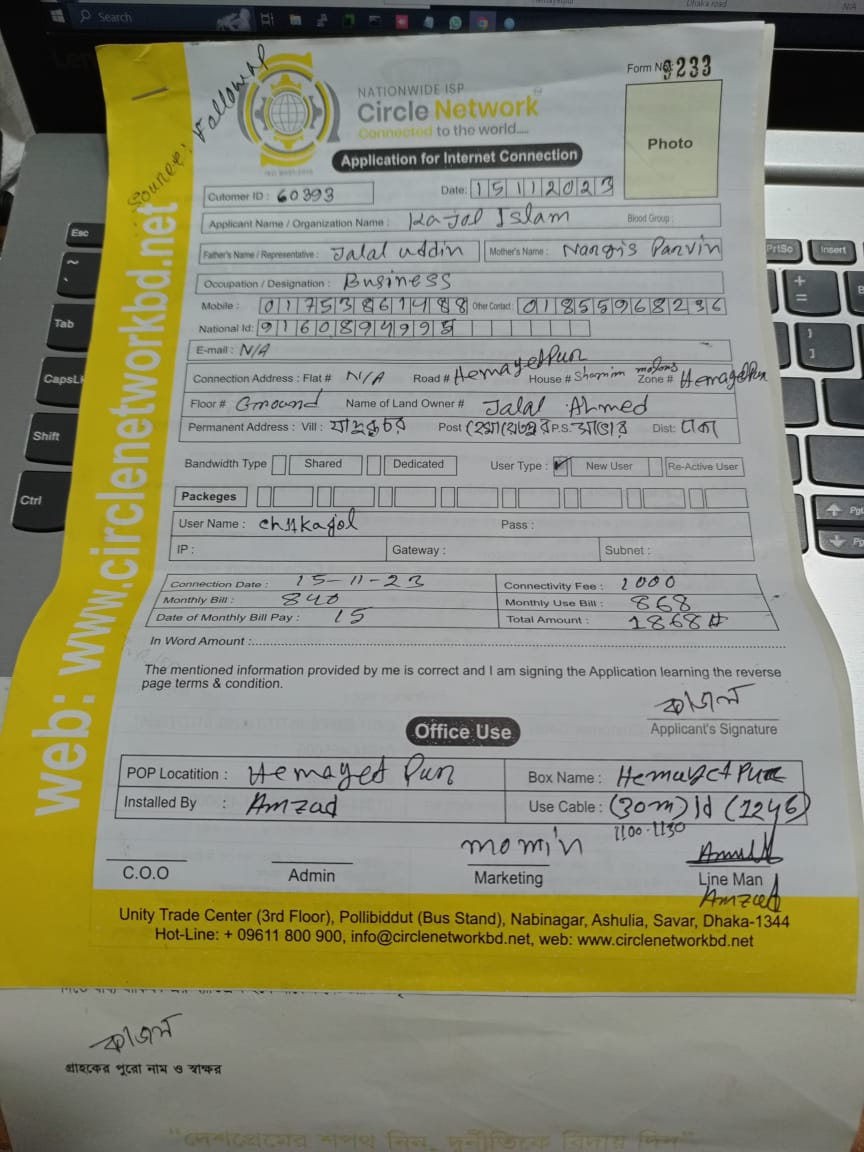 Search
Source: Followup
NATIONWIDE ISP
Circle Network
Connected to the world....
Form No 9233
Photo
Application for Internet Connection
Cutomer ID : 60393 Date: 15112023
Applicant Name / Organization Name : Kajol Islam Blood Group :
Father's Name / Representative : Jalal uddin Mother's Name : Nargis Parvin
Occupation / Designation : Business
Mobile : 01753861488 Other Contact : 01855968236
National Id: 9160894995
E-mail : N/A
Connection Address : Flat # N/A Road # Hemayetpur House # Shamim Zone # Hemayetpur
Floor # Ground Name of Land Owner # Jalal Ahmed
Permanent Address : Vill : যাদুরচর Post হেমায়েতপুর P.S. সাভার Dist: ঢাকা
Bandwidth Type Shared Dedicated User Type : ✔ New User Re-Active User
Packeges
User Name : Pass :
IP : Gateway : Subnet :
Connection Date : 15-11-23 Connectivity Fee : 1000
Monthly Bill : 840 Monthly Use Bill : 868
Date of Monthly Bill Pay : 15 Total Amount : 1868#
In Word Amount :
The mentioned information provided by me is correct and I am signing the Application learning the reverse
page terms & condition.
কাজল
Applicant's Signature
Office Use
POP Locatition : Hemayed Pur Box Name : Hemayet Pur
Installed By : Amzad Use Cable : (30m) Id (1246)
1100-1130
momin
C.O.O Admin Marketing Line Man
Amzad
Unity Trade Center (3rd Floor), Pollibiddut (Bus Stand), Nabinagar, Ashulia, Savar, Dhaka-1344
Hot-Line: + 09611 800 900, info@circlenetworkbd.net, web: www.circlenetworkbd.net
web: www.circlenetworkbd.net
কাজল
গ্রাহকের পুরো নাম ও স্বাক্ষর
"দেশপ্রেমের শপথ নিন, দুর্নীতিকে বিদায় দিন"
Esc
Tab
CapsL
Shift
Ctrl
PrtSc
Insert